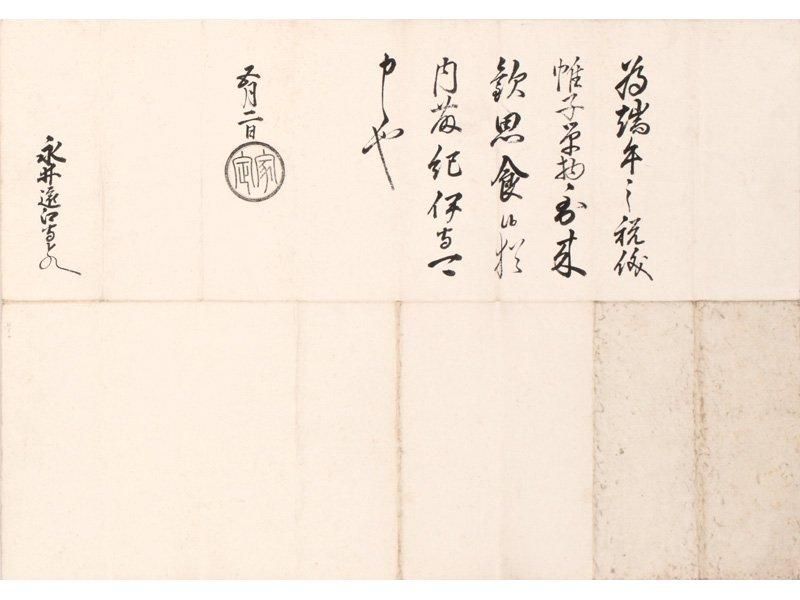 為端午之祝儀
帷子単物到来
歓思食候猶
内藤紀伊守可
申候也
五月二日
家定
永井遠江守とのへ